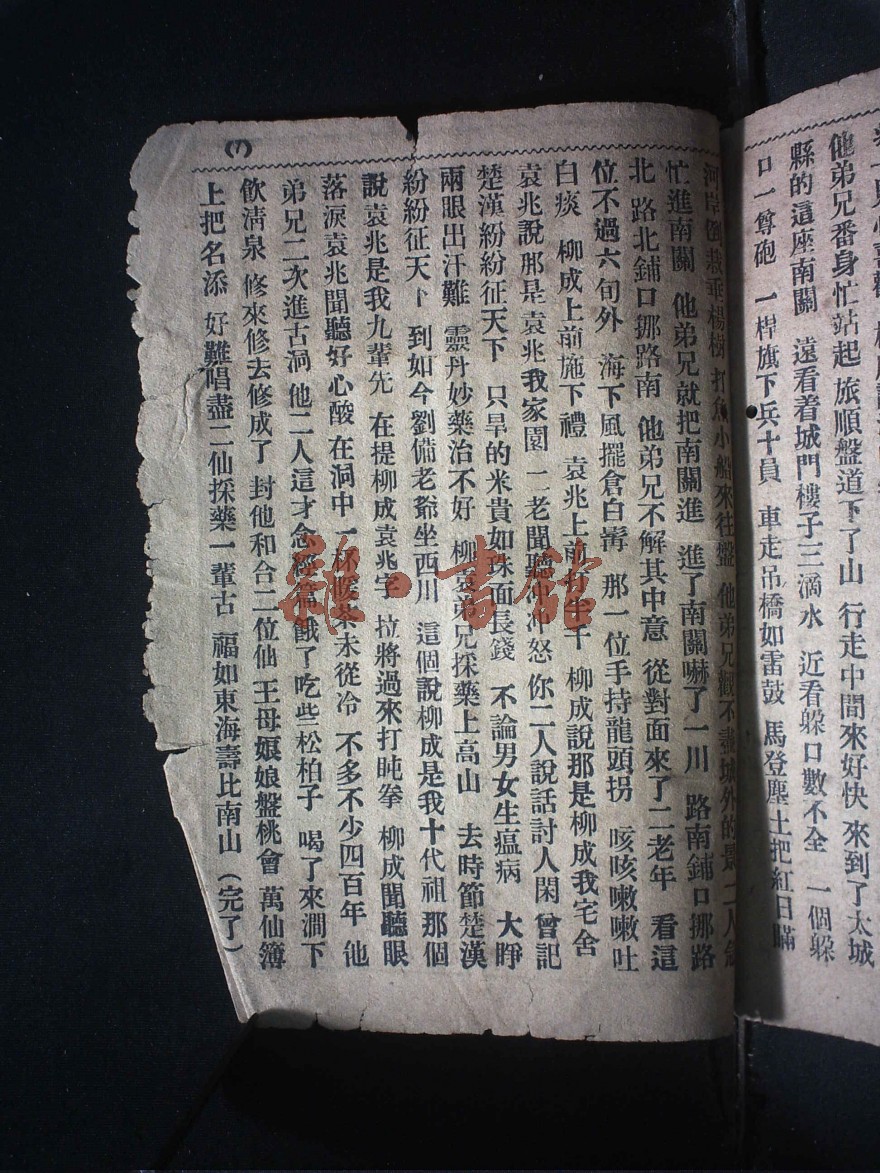 他弟兄番身忙站起 旅順盤道下了山 行走中間來好快 來到了太城
縣的這座南關 遠看着城門樓子三滴水 近看躱口數不全 一個躱
口一尊砲 一桿旗下兵十員 車走吊橋如雷鼓 馬登塵土把紅日瞞
河岸倒栽垂楊樹 打魚小船來往盤 他弟兄觀不盡城外的景 二人急
忙進南關 他弟兄就把南關進 進了南關嚇了一川 路南鋪口挪路
北 路北鋪口挪路南 他弟兄不解其中意 從對面來了二老年 看這
位不過六旬外 海下風擺倉白鬍 那一位手持龍頭拐 咳咳嗽嗽吐
白痰 柳成上前施下禮 袁兆上前打 柳成說那是柳成我宅舍
袁兆說那是袁兆我家園 二老聞聽冲冲怒 你二人說話討人閑 曾記
楚漢紛紛征天下 只旱的米貴如珠面長錢 不論男女生瘟病 大睁
兩眼出汗難 靈丹妙藥治不好 柳袁弟兄採藥上高山 去時節楚漢
紛紛征天下 到如今劉備老爺坐西川 這個說柳成是我十代祖那個
說袁兆是我九輩先 在提柳成袁兆字 拉將過來打盹拳 柳成聞聽眼
落淚袁兆聞聽好心酸 在洞中一杯 茶未從冷 不多不少四百年 他
弟兄二次進古洞 他二人這才念經篇餓了吃些松柏子 喝了來澗下
飲淸泉 修來修去修成了 封他和合二位仙 王母娘娘盤桃會 萬仙簿
上把名添 好難唱盡二仙採藥一輩古 福如東海壽比南山 (完了)
(7)
雜·書館